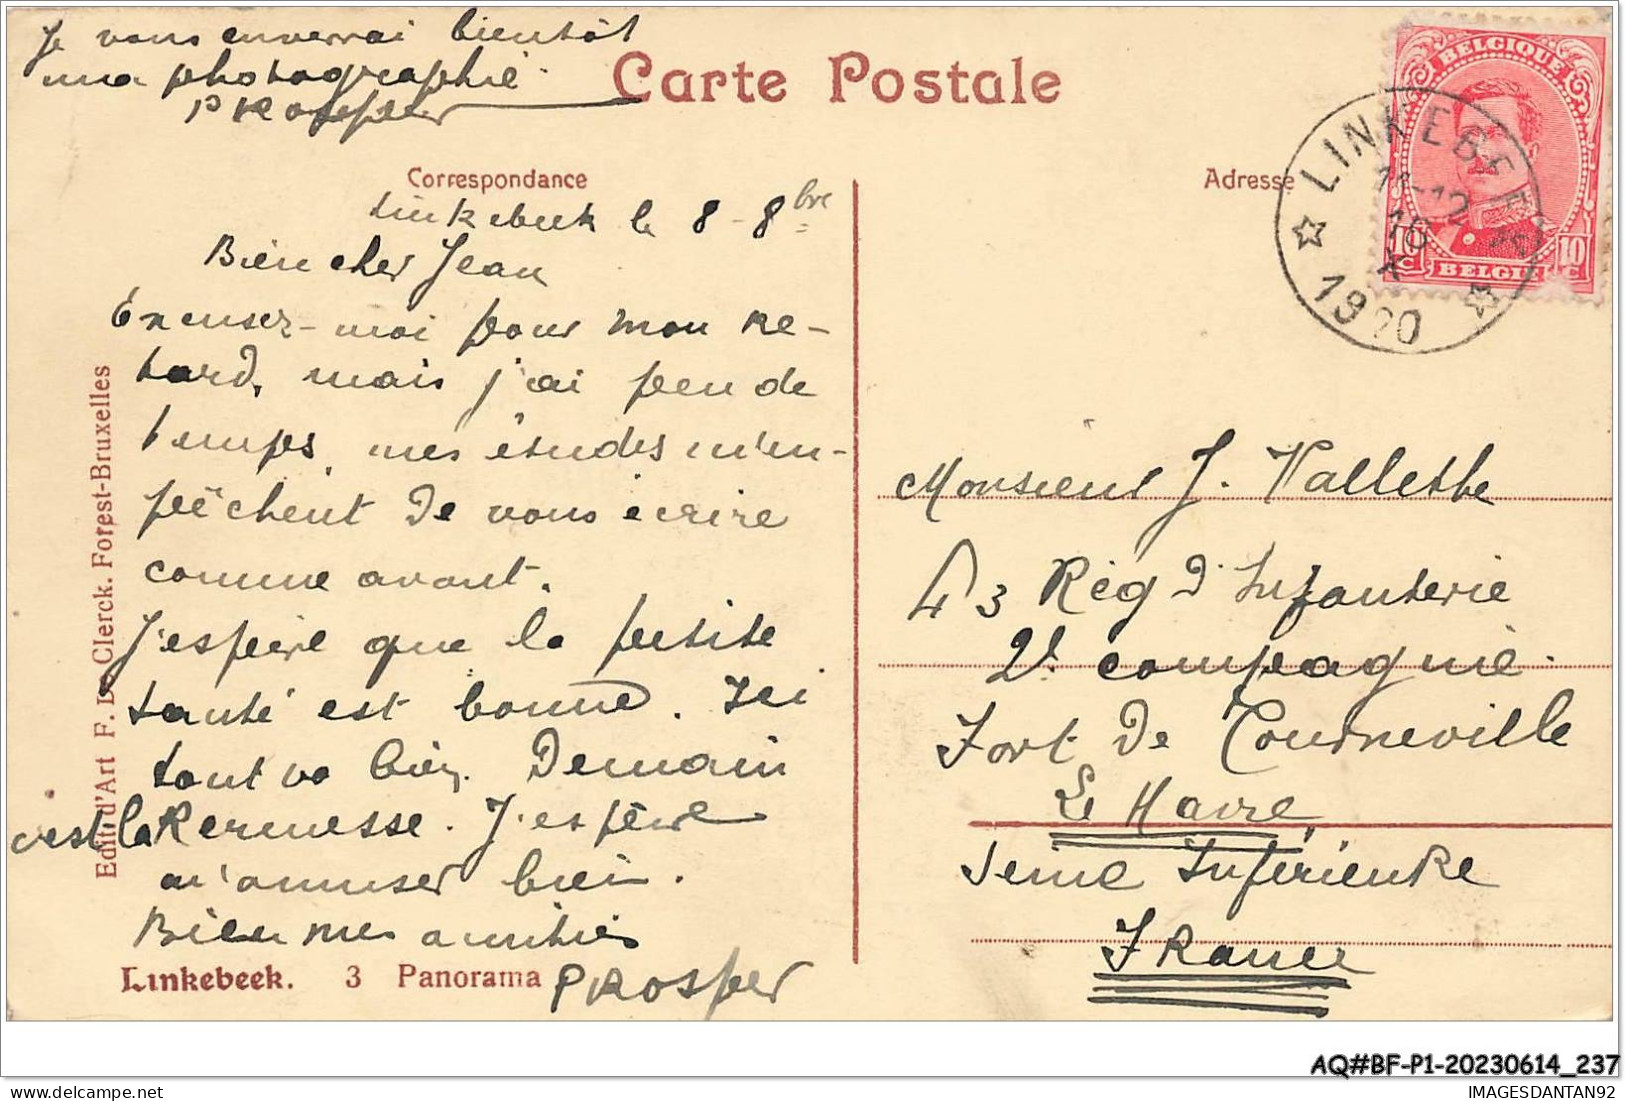 Je vous enverrai bientôt
ma photographie.
PRosper
Carte Postale
BELGIQUE
LINKEBEEK
11-12
10
X
1920
10 C
10 C
BELGIË
Correspondance
Adresse
Linkebeek le 8-8bre
Bien cher Jean
Excuser-moi pour mon re-
tard, mais j'ai peu de
temps, mes études m'em-
pêchent de vous écrire
comme avant.
J'espère que la petite
santé est bonne. Ici
tout va bien. Demain
c'est la Kermesse. J'espère
m'amuser bien.
Bien mes amitiés
PRosper
Monsieur J. Vallethe
43 Rég d'Infanterie
2e compagnie.
Fort de Tourneville
Le Havre
Seine Inférieure
France
Edit. d'Art F. De Clerck. Forest-Bruxelles
Linkebeek. 3 Panorama
AQ#BF-P1-20230614_237
IMAGESDANTAN92